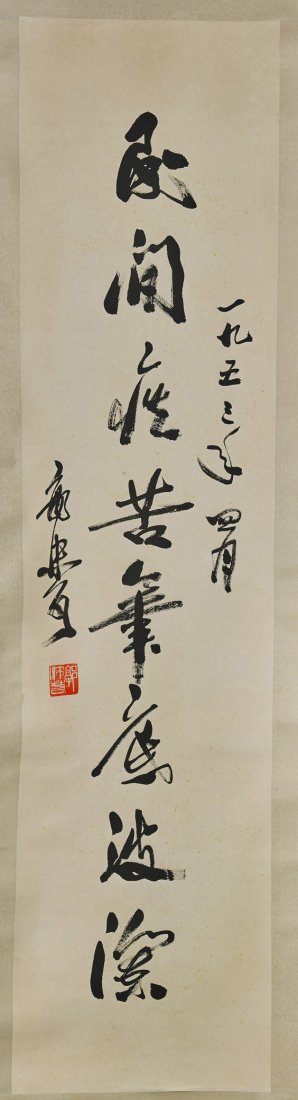 一九五三年四月
民間疾苦筆底波瀾
郭沫若